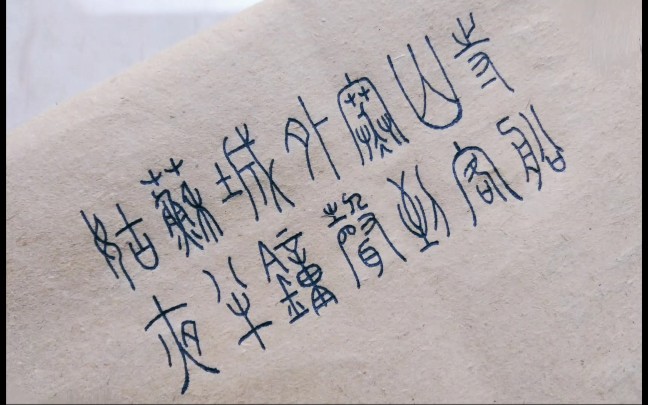 姑蘇城外寒山寺
夜半鐘聲到客船